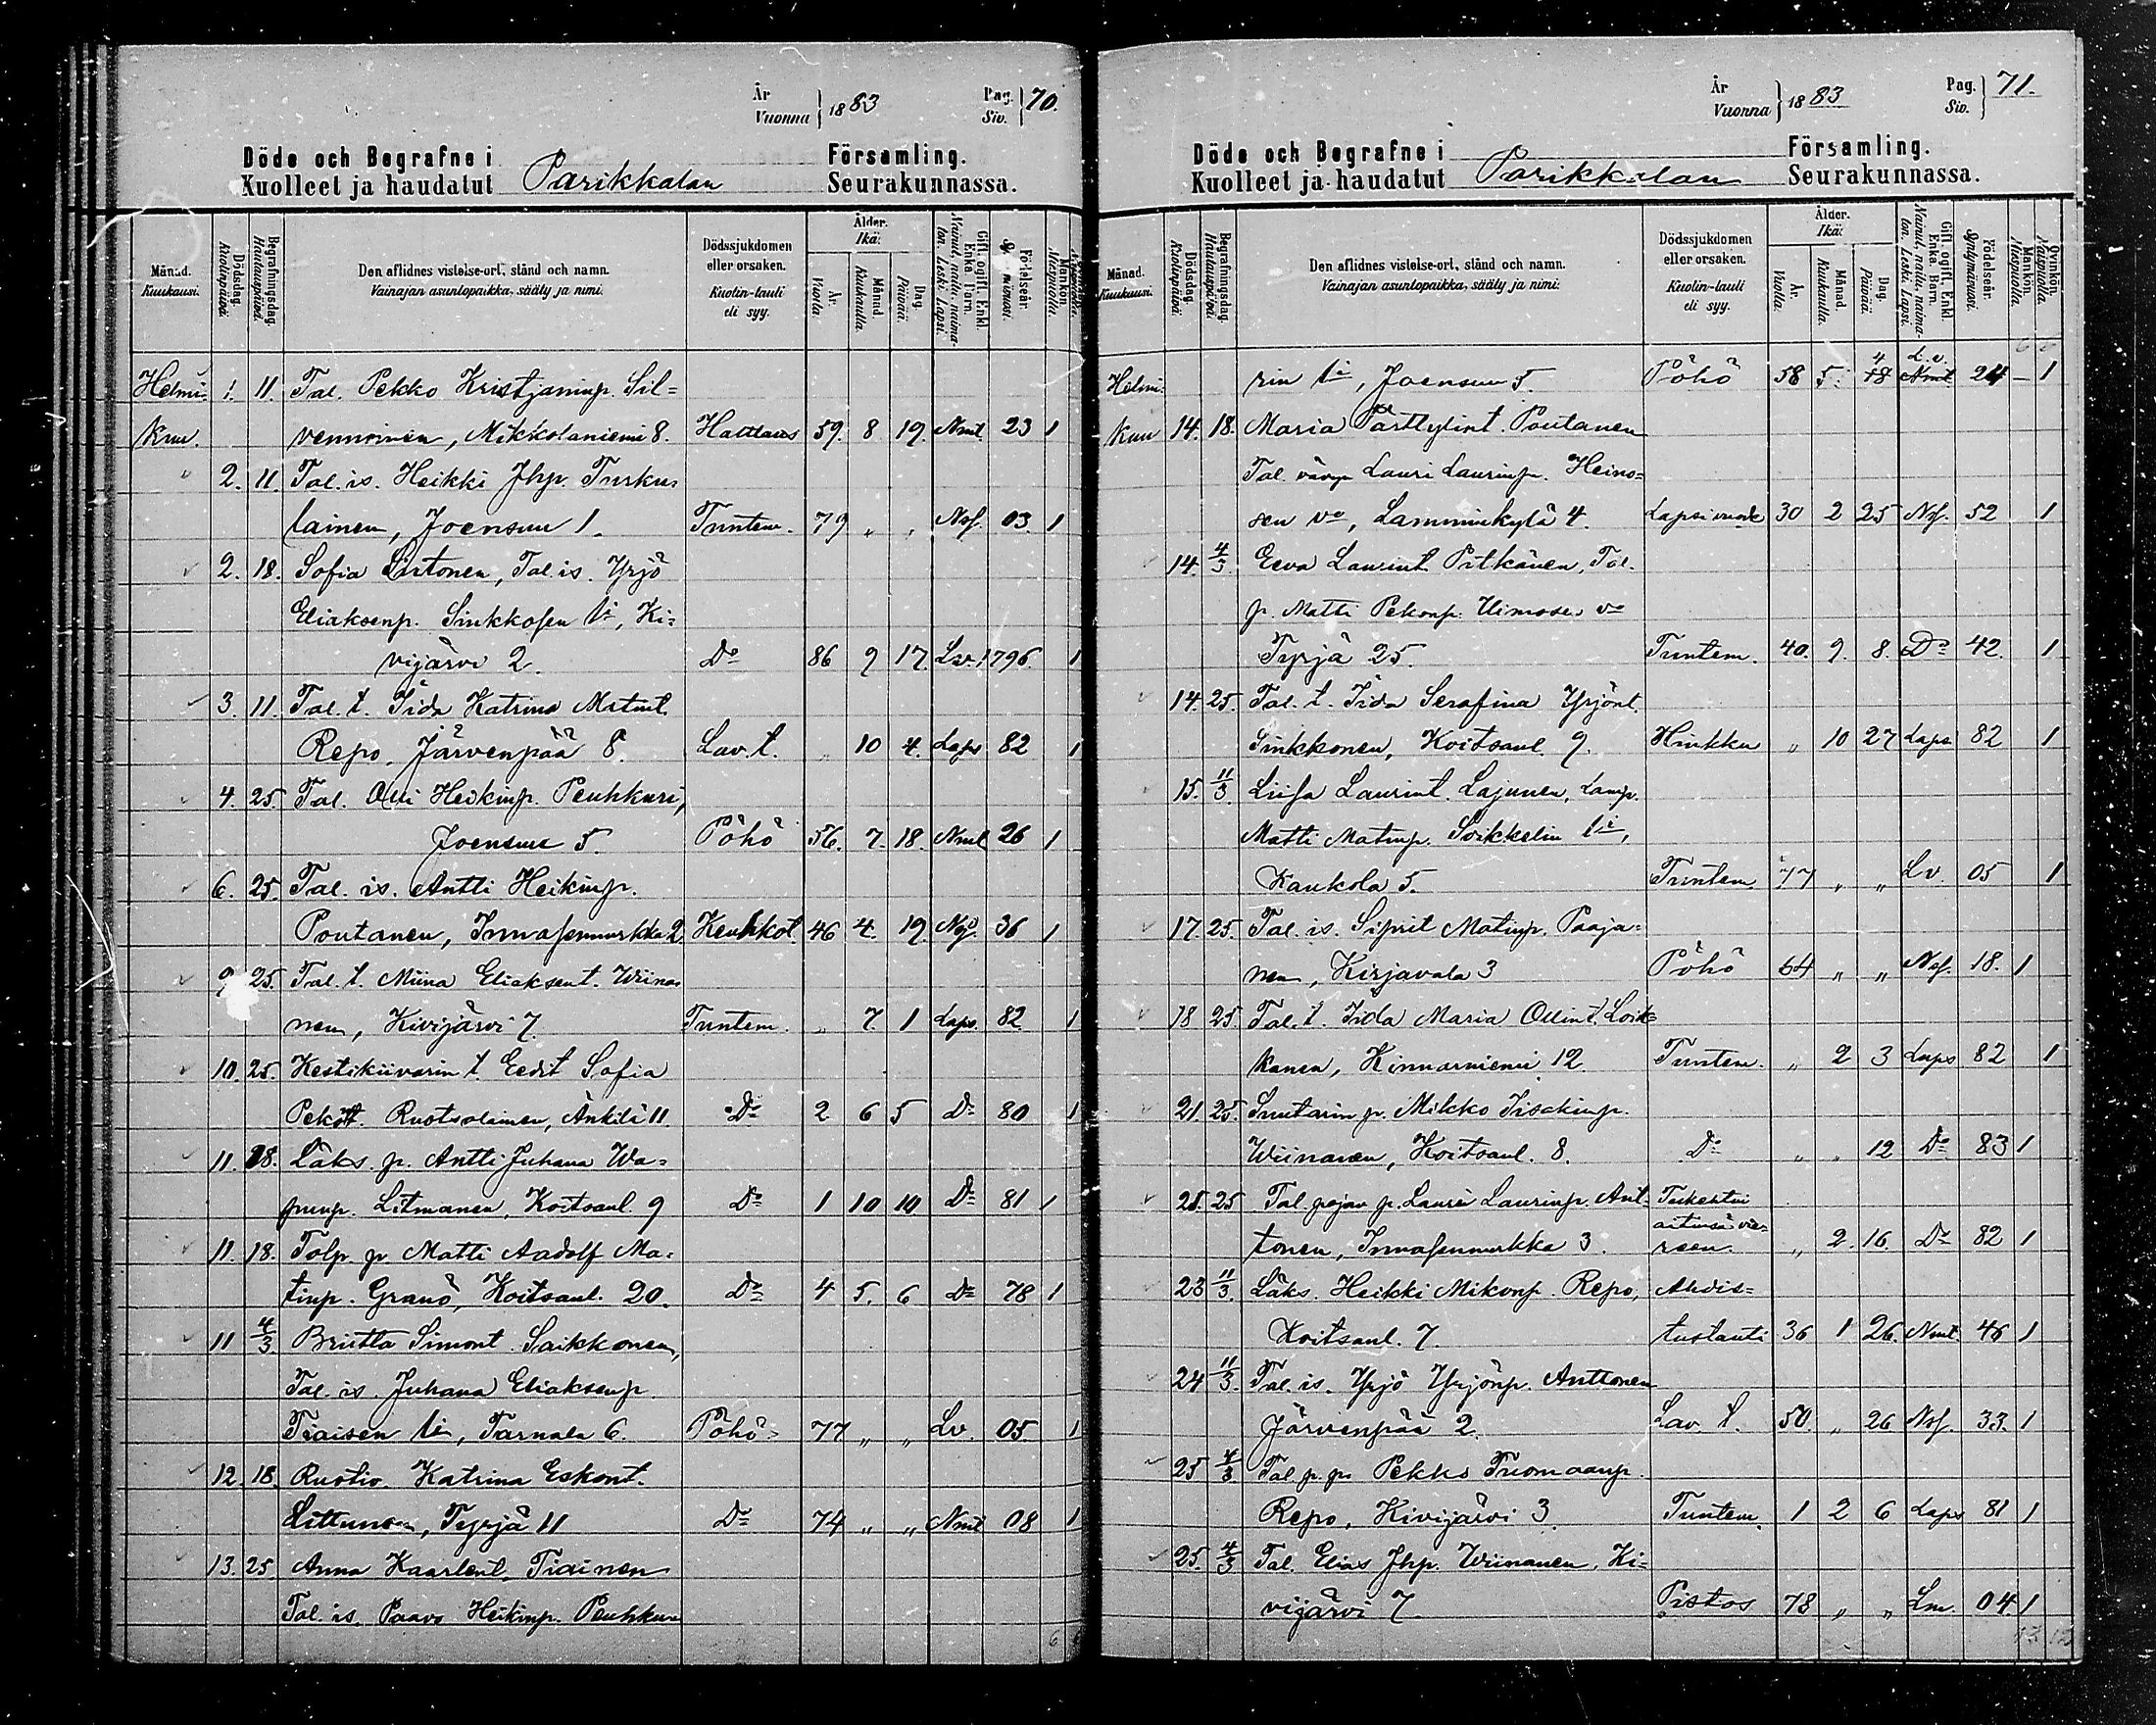 År
Vuonna } 1883
Pag.
Siv. } 70.
Döde och Begrafne i Församling.
Kuolleet ja haudatut Parikkalan Seurakunnassa.
Månad. Kuukausi.
Dödsdag. Kuolinpäivä.
Begrafningsdag. Hautauspäivä.
Den aflidnes vistelse-ort, stånd och namn.
Vainajan asuntopaikka, sääty ja nimi.
Dödssjukdomen eller orsaken.
Kuolin-tauti eli syy.
Ålder. Ikä:
År. Vuotta. Månad. Kuukautta. Dag. Päivää.
Gift, ogift, Enkl. Enka, Barn.
Nainut, naitu, naimaton. Leski. Lapsi.
Födelseår.
Mankön. Miespuolia.
Helmi- 1. 11. Tal. Pekko Kristjaninp. Sil=
kuu. vennoinen, Mikkolaniemi 8. Halttaus 59. 8 19. Nmt. 23 1
2. 11. Tal. is. Heikki Jhp. Turku=
lainen, Joensuu 1. Tuntem. 79 „ „ Nsf. 03. 1
2. 18. Sofia Tal. is. Yrjö
Eliaksenp. Sinkkosen li, Ki=
vijärvi 2. Do 86 9 17. Lsv. 1796. 1
3. 11. Tal. t. Iida Katrina Mrtint.
Repo, Järvenpää 8. Lav. t. „ 10 4. Laps 82 1
4. 25. Tal. Olli Heikinp. Peuhkuri,
Joensuu 5. Pöhö 56. 7. 18. Nmt 26 1
6. 25. Tal. is. Antti Heikinp.
Poutanen, Innasenmurkka 2 Keuhkot. 46 4. 19. Nsf. 36 1
9. 25. Tal. t. Miina Eliaksent. Wiina=
nen, Kivijärvi 7. Tuntem. „ 7. 1 Laps. 82. 1
10. 25. Kestikiivarin t. Eedit Sofia
Pekont. Ruotsalainen, Änkilä 11 Do 2 6 5 Do 80 1
11. 18. Läks. p. Antti Juhana Wa=
punp. Litmanen, Koitsanl. 9 Do 1 10 10 Do 81 1
11. 18. Tolp. p. Matti Aadolf Ma=
tinp. Granö, Koitsanl. 20. Do 4 5. 6 Do 78 1
11 4/3. Briitta Simont. Saikkonen,
Tal. is. Juhana Eliaksenp.
Tiaisen li, Tarnala 6. Pöhö 77 „ „ Lv. 05. 1
12. 18. Ruotiv. Katrina Eskont.
Littunen, Tyrjä 11 Do 74 „ „ Nmt 08 1
13. 25 Anna Kaarlent. Tiainen
Tal. is. Paavo Heikinp. Peuhku=
6
År
Vuonna } 1883
Pag.
Siv. } 71.
Döde och Begrafne i Församling.
Kuolleet ja haudatut Parikkalan Seurakunnassa.
Månad. Kuukausi.
Dödsdag. Kuolinpäivä.
Begrafningsdag. Hautauspäivä.
Den aflidnes vistelse-ort, stånd och namn.
Vainajan asuntopaikka, sääty ja nimi.
Dödssjukdomen eller orsaken.
Kuolin-tauti eli syy.
Ålder. Ikä:
År. Vuotta. Månad. Kuukautta. Dag. Päivää.
Gift, ogift, Enkl. Enka, Barn.
Nainut, naitu, naimaton. Leski. Lapsi.
Födelseår. Syntymävuosi.
Mankön. Miespuolia.
Qvinkön. Naispuolia.
Helmi- rin li, Joensuu 5. Pöhö 58 5. 4 18 L.v. Nmt 24 – 1
kuu 14. 18. Maria Parttylint. Poutanen
Tal. vävyn Lauri Laurinp. Heino=
sen vo, Lamminkylä 4. Lapsivuode 30 2 25 Nsf. 52 1
14. 4/3. Eeva Laurint. Pitkänen, Tal.
p. Matti Pekonp. Uimosen vo
Tyrjä 25. Tuntem. 40. 9. 8. Do 42. 1
14. 25. Tal. t. Iida Serafina Yrjönt.
Sinkkonen, Koitsanl. 9. Hinkku „ 10 27 Laps 82 1
15. 11/3. Liisa Laurint. Lajunen, Lamp.
Matti Matinp. Soikkelin li,
Kaukola 5. Tuntem. 77 „ „ Lv. 05 1
17. 25. Tal. is. Siprit Matinp. Paaja=
nen, Kirjavala 3 Pöhö 64 „ „ Nsf. 18. 1
18 25. Tal. t. Iida Maria Ollint. Loik=
kanen, Kinnarniemi 12. Tuntem. „ 2 3 Laps 82 1
21. 25. Suutarin p. Mikko Iisakinp.
Wiinanen, Koitsanl. 8. Do „ „ 12 Do 83 1
21. 25 Tal. pojan p. Lauri Laurinp. Ant= Tukehtui
tonen, Innasenmurkka 3. reen. „ 2. 16. Do 82 1
23 11/3. Läks. Heikki Mikonp. Repo, Ahdis=
Koitsanl. 7. tustauti 36 1 26. Nmt. 46 1
24 11/3. Tal. is. Yrjö Yrjönp. Anttonen
Järvenpää 2. Lav. t. 50. „ 26 Nsf. 33. 1
25 4/3. Tal. p. p. Pekko Tuomaanp.
Repo, Kivijärvi 3. Tuntem. 1 2 6 Laps 81 1
25. 4/3 Tal. Elias Jhp. Wiinanen, Ki=
vijärvi 7. Pistos 78 „ „ Lm. 04. 1
13 12